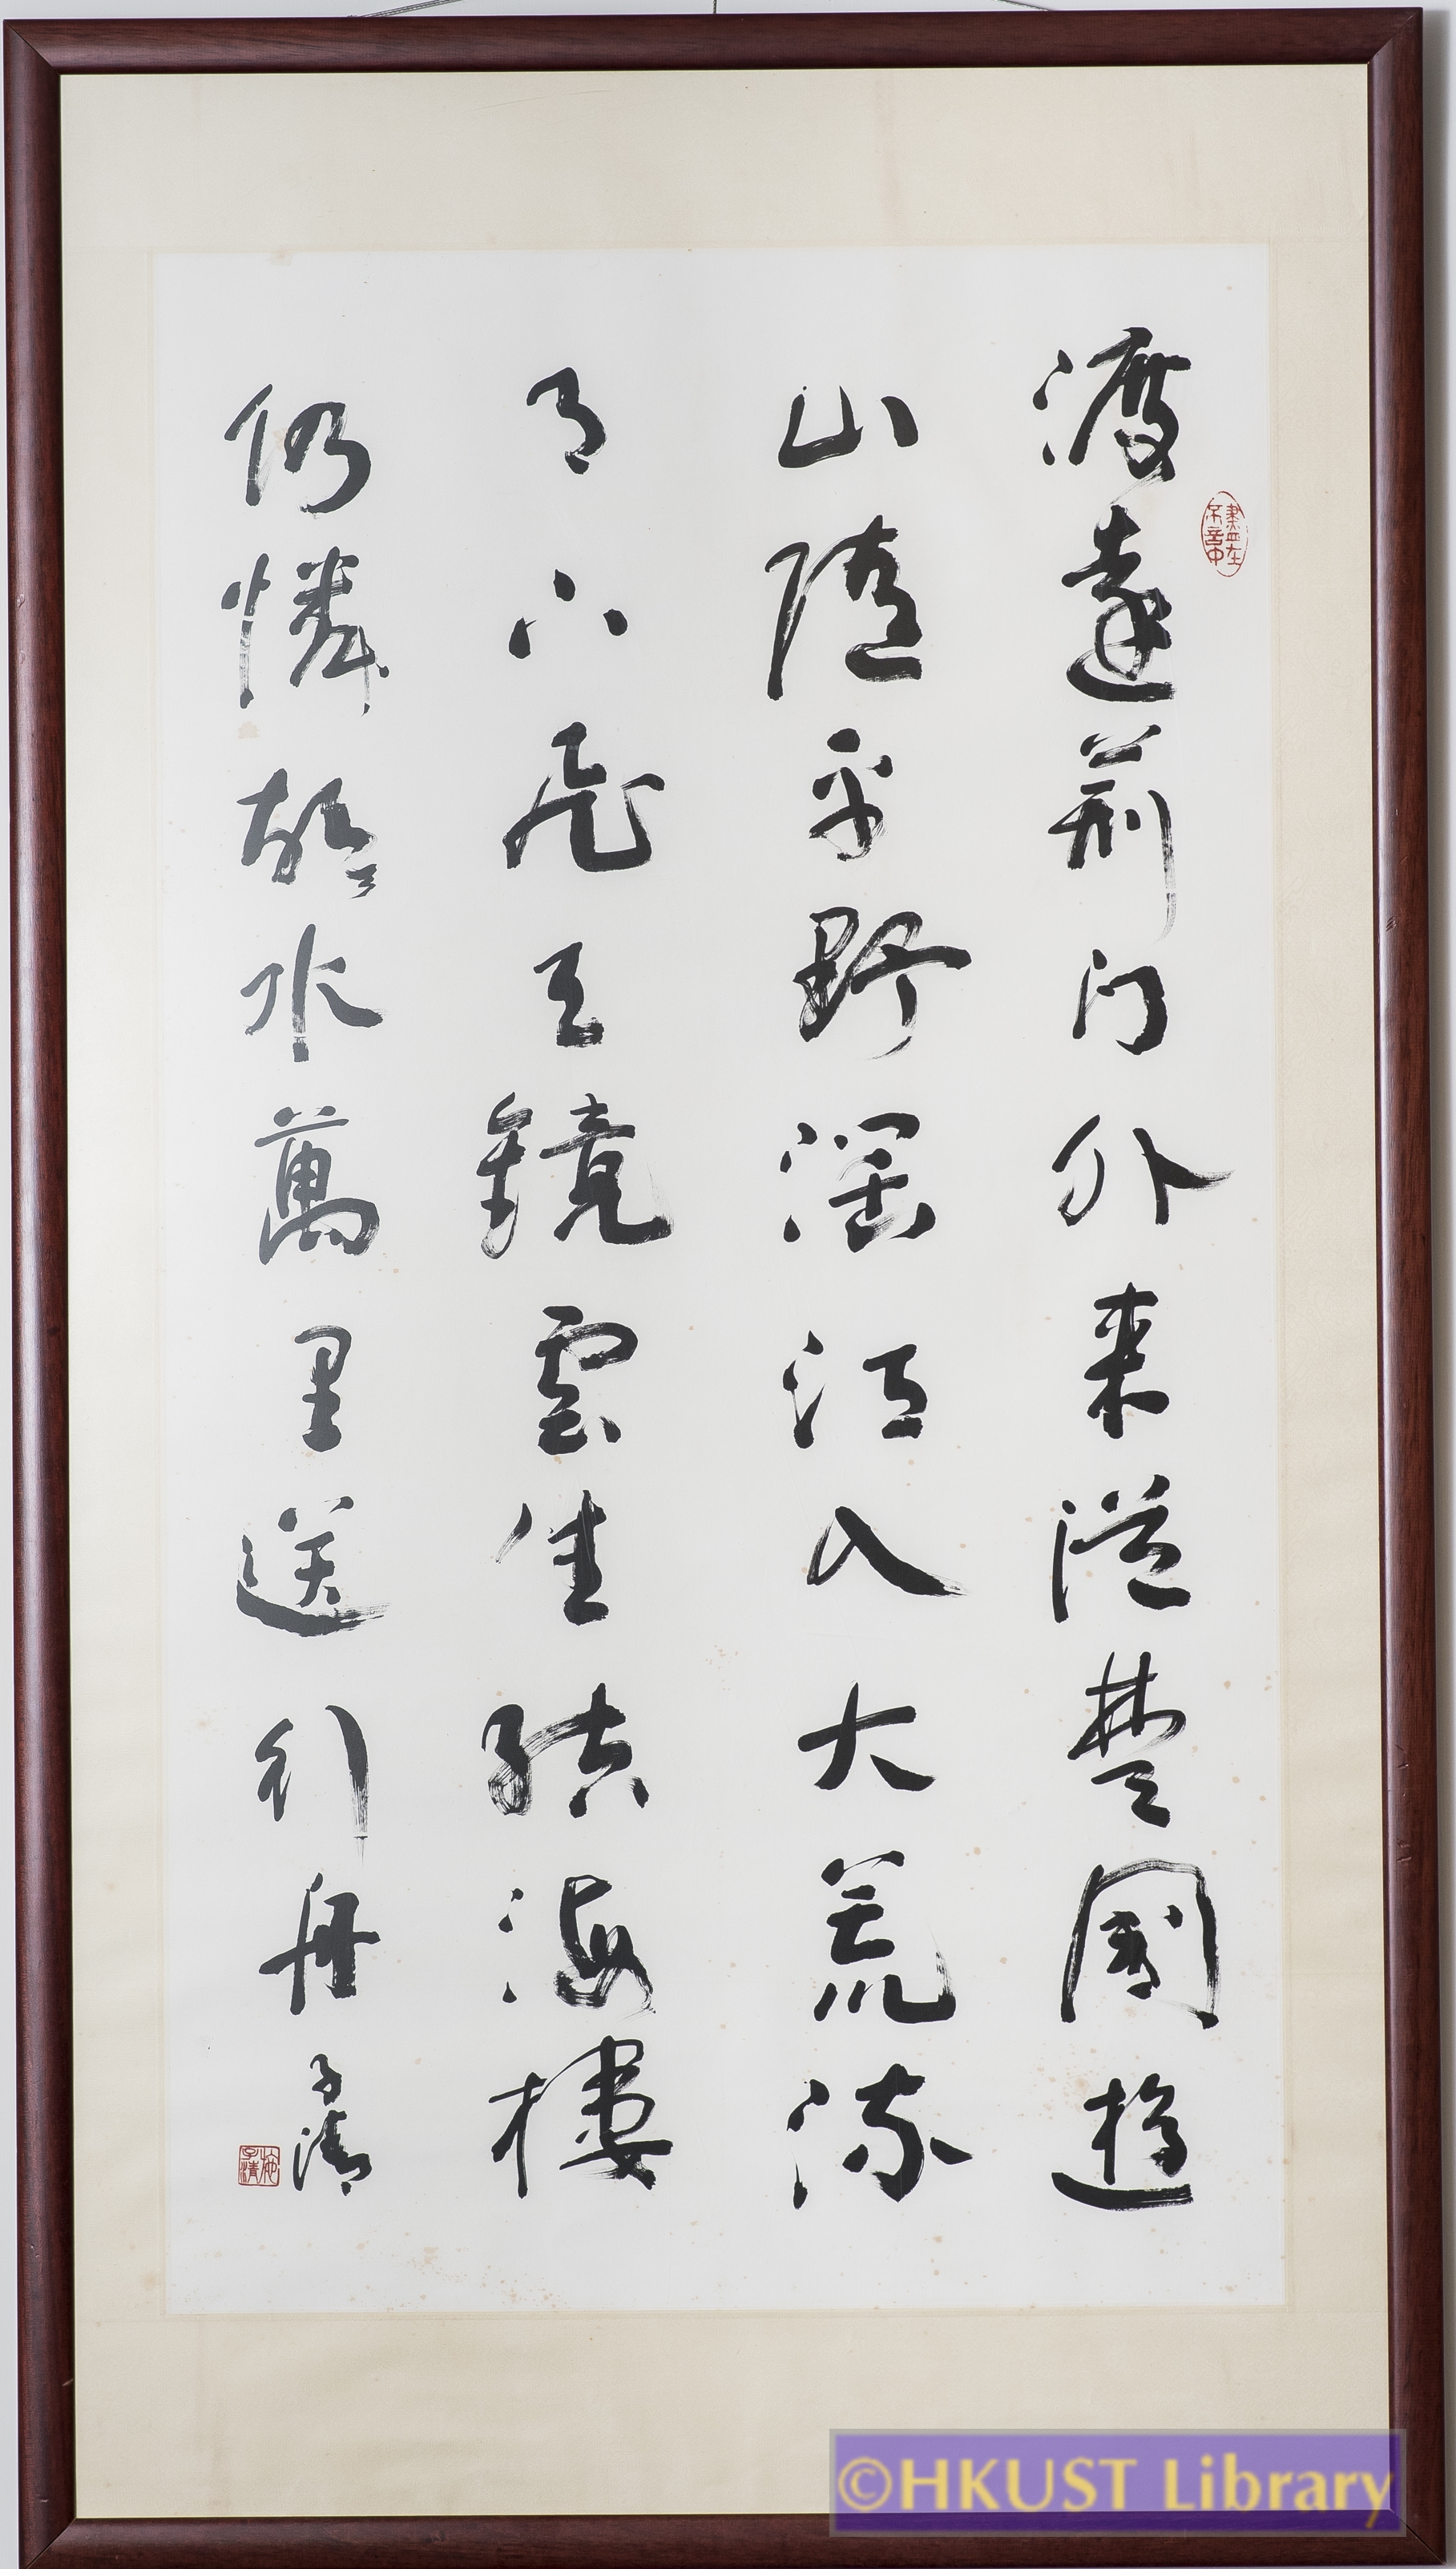 盡在不言中
渡遠荊门外来從楚國遊
山隨平野濶江入大荒流
月下飛天鏡雲生結海樓
仍憐故水萬里送行舟
子清
施子清
©HKUST Library